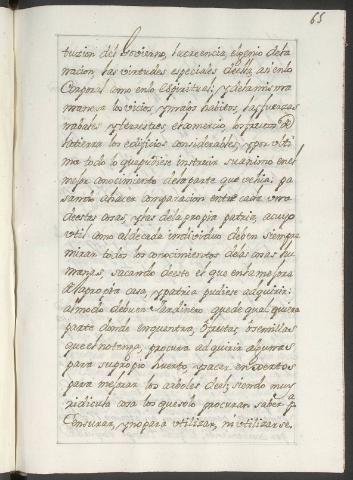 65
tucion del Govierno, la creencia, el genio dela
nacion, las virtudes especiales de ella, asi enlo
Corporal como enlo espiritual, y dela misma
manera los vicios, y malos habitos, las fuerzas
nabales y terrestres, el comercio, los frutos de
la tierra los edificios considerables, y por ulti
mo todo lo que pudiese instruir su animo en el
mejor conocimiento dela parte que vehia, pa
sando a hacer comparacion entre cada una
de estas cosas, y las dela propia patria, a cuyo
util como al de cada individuo deben siempre
mirar todos los conocimientos delas cosas hu
manas, sacando de esto el que en la mejora
de la propia casa, y patria pudiese adquirir:
al modo de buen Jardinero, que de qualquiera
parte donde encuentra, ó frutas, ó semillas
que el no tenga, procura adquirir algunas
para su propio huerto, y hacer enxertos
para mejorar los arboles de el; siendo muy
ridicula cosa los que solo procuran saber pa
Censurar, y no para utilizar, ni utilizarse.